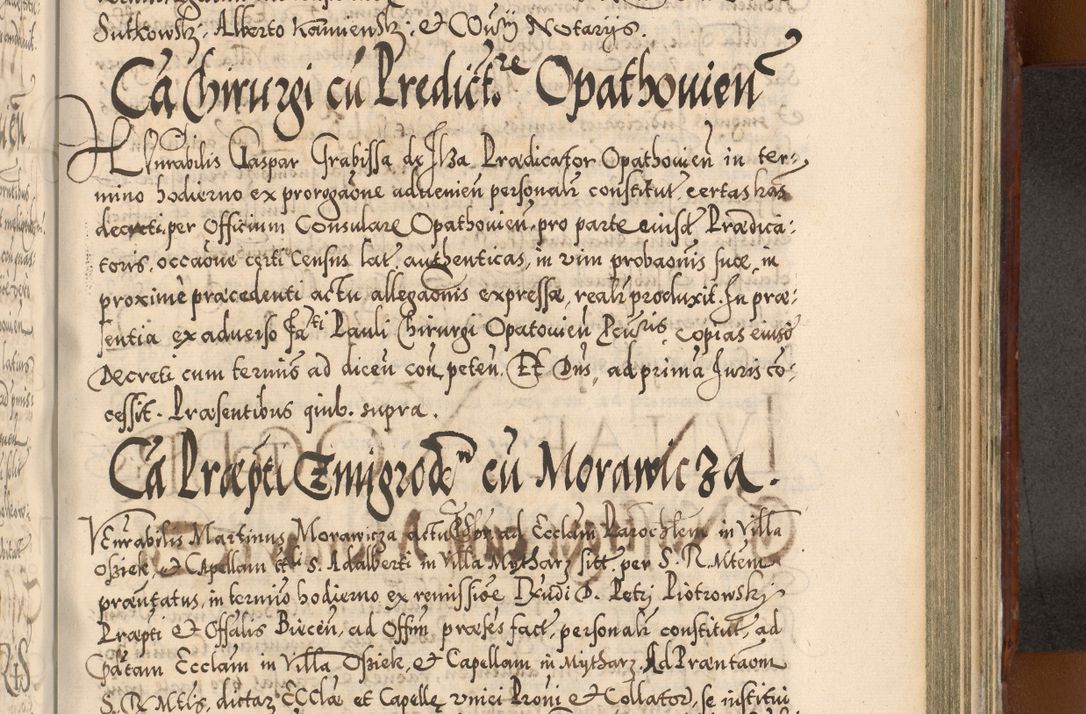 Sutkowskj, Alberto Kamienskj, & Cowij Notarijs.
Ca Chirurgi cū Predictre Opathouien
Hnrabilis Caspar Grabissa de Ilza Prædicator Opathouien in ter-
mino hodierno ex prorogaōne aduenien personalr constitut. certas has
decreti per Officium Consulare Opathouien pro parte eiusd Prædica-
toris, occaōne certi census lat. authenticas, in vim probaōnis suæ, in
proximè præcedenti actu allegaōnis expressæ, realr produxit. In præ-
sentia ex aduerso fati Pauli Chirurgi Opatouien copias eiusd
Decreti cum termīs ad dicen competen. Et Dn̄s, ad prima Juris co-
cessit. Præsentibus quib. supra.
Ca Præpti Zmigrodn cū Morawicza.
Venrabilis Martinus Morawicza ad Ecclam Parochlem in Villa
Osiek, & Capellam sti S. Adalberti in Villa Mytharz sitt. per S. R. Mtem
præntatus, in termīo hodierno ex remissiōe D. Petrj Piotrowskj
Præpti & Offalis Biecen, ad Offm præses fact, personalr constitut, ad
Ecclam in Villa Osiek, & Capellam in Mytharz. Ad Præntaom
S. R. Mtis, dictar Ecclæ et Capellę vnici Proni & Collator, se institui